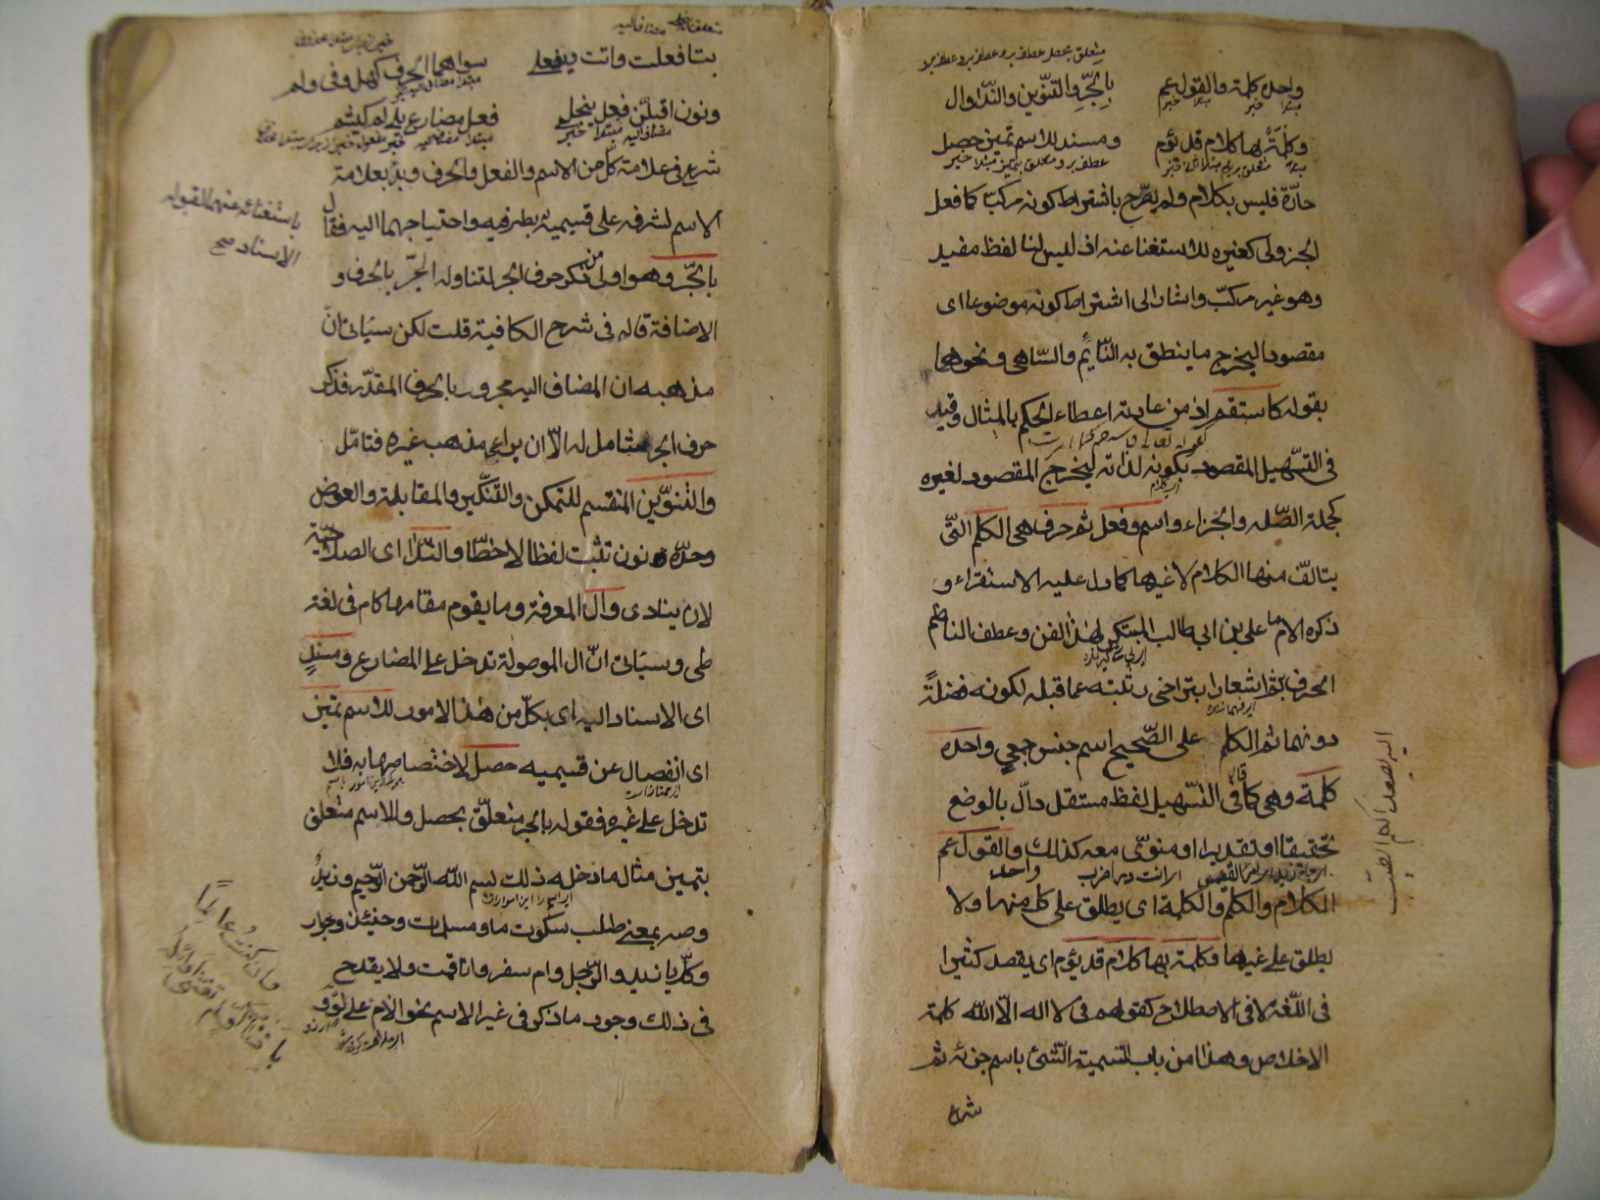 واحده كلمة والقول عم
بالجرّ والتنوين والندا وال
وكلمة بها كلام قد يؤم
ومسند للاسم تميز حصل
حارّة فليس بكلام ولم يصرّح باشتراط كونه مركبّا كما فعل
الجزولى كغيره للاستغنا عنه اذ ليس لنا لفظ مفيد
وهو غير مركبّ واشار الى اشتراط كونه موضوعا اى
مقصودا ليخرج ما ينطق به النّائم والسّاهى ونحوهما
بقوله كاستقم اذ من عادته اعطاء الحكم بالمثال وقيد
فى التّسهيل المقصود بكونه لذاته ليخرج المقصود لغيره
كجملة الصّله والجزاء واسم وفعل ثم حرف هى الكلم التّى
يتالّف منها الكلام لا غيرها كما دل عليه الاستقراء و
ذكره الامام على بن ابى طالب المبتكر لهذا الفن وعطف الناظم
الحرف بثم اشعارا بتراخى رتبته عما قبله لكونه فضلةً
دونهما ثم الكلم على الصّحيح اسم جنس جمعى واحده
كلمة وهى كما قال فى التّسهيل لفظ مستقل دالّ بالوضع
تحقيقا او تقديرا او منوىّ معه كذلك والقول عم
الكلام والكلم والكلمة اى يطلق على كل منها ولا
يطلق على غيرها وكلمة بها كلام قد يؤم اى يقصد كثيرا
فى اللّغة لا فى الاصطلاح كقولهم فى لا اله الّا اللّه كلمة
الاخلاص وهذا من باب تسمية الشّئ باسم جزئه ثم
شرع
اليه يصعد الكلم الطيب
بتا فعلت واتت ويا افعلى
سواهما الحرف كهل وفى ولم
ونون اقبلنّ فعل ينجلى
فعل مضارع يلى لم كيشم
شرع فى علامة كل من الاسم والفعل والحرف وبدٔ بعلامة
الاسم لشرفه على قسيميه بطرفيه واحتياجهما اليه فقال
باستغنائه عنهما لقبوله
الاسناد صح
بالجرّ وهو اولى من ذكر حرف الجر لتناوله الجرّ بالحرف و
الاضافة قاله فى شرح الكافية قلت لكن سئاتى انّ
مذهبه ان المضاف اليه مجرور بالحرف المقدّر فذكر
حرف الجر شامل له الّا ان يراعى مذهب غيره فتامّل
والتّنوّين المنقسم للتّمكن والتّنكّير والمقابلة والعوض
وحدّه نون تثبت لفظا لا خطّا والنّدا اى الصلاحيّة
لان ينادى وال المعرفة وما يقوم مقامها كام فى لغة
طى وسئاتى انّ ال الموصولة تدخل على المضارع ومسندٍ
اى الاسناد اليه اى بكلّ من هذه الامور للاسم تميز
اى انفصال عن قسيميه حصل لاختصاصها به فلا
تدخل على غيره فقوله بالجر متعلّق بحصل وللاسم متعلق
بتميز مثال ما دخله ذلك بسم اللّه الرّحمن الرّحيم وزيدٌ
وصه بمعنى طلب سكوت ما ومسلمات وحينئذ وجوار
وكلّ يا زيد والرّجل وام سفر وانا قمت ولا يقدح
فى ذلك وجود ما ذكر فى غير الاسم نحو الام على لوّ و